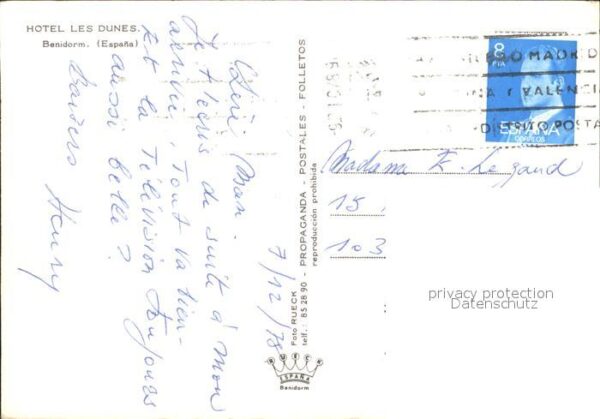 HOTEL LES DUNES.
Benidorm. (España)
7/12/78
Chérie Man.
Je t'écris de suite à mon
arrivée. Tout va bien-
Et la Télévision toujours
aussi belle?
Baisers Henry
Foto RUECK - PROPAGANDA - POSTALES - FOLLETOS
telf.: 85 28 90 - reproducción prohibida
RUECK
ESPAÑA
Benidorm
8
PTA
ESPAÑA
CORREOS
MADRID
VALENCIA
DISTRITO POSTAL
Madame E. Legrand
15,
103
privacy protection
Datenschutz